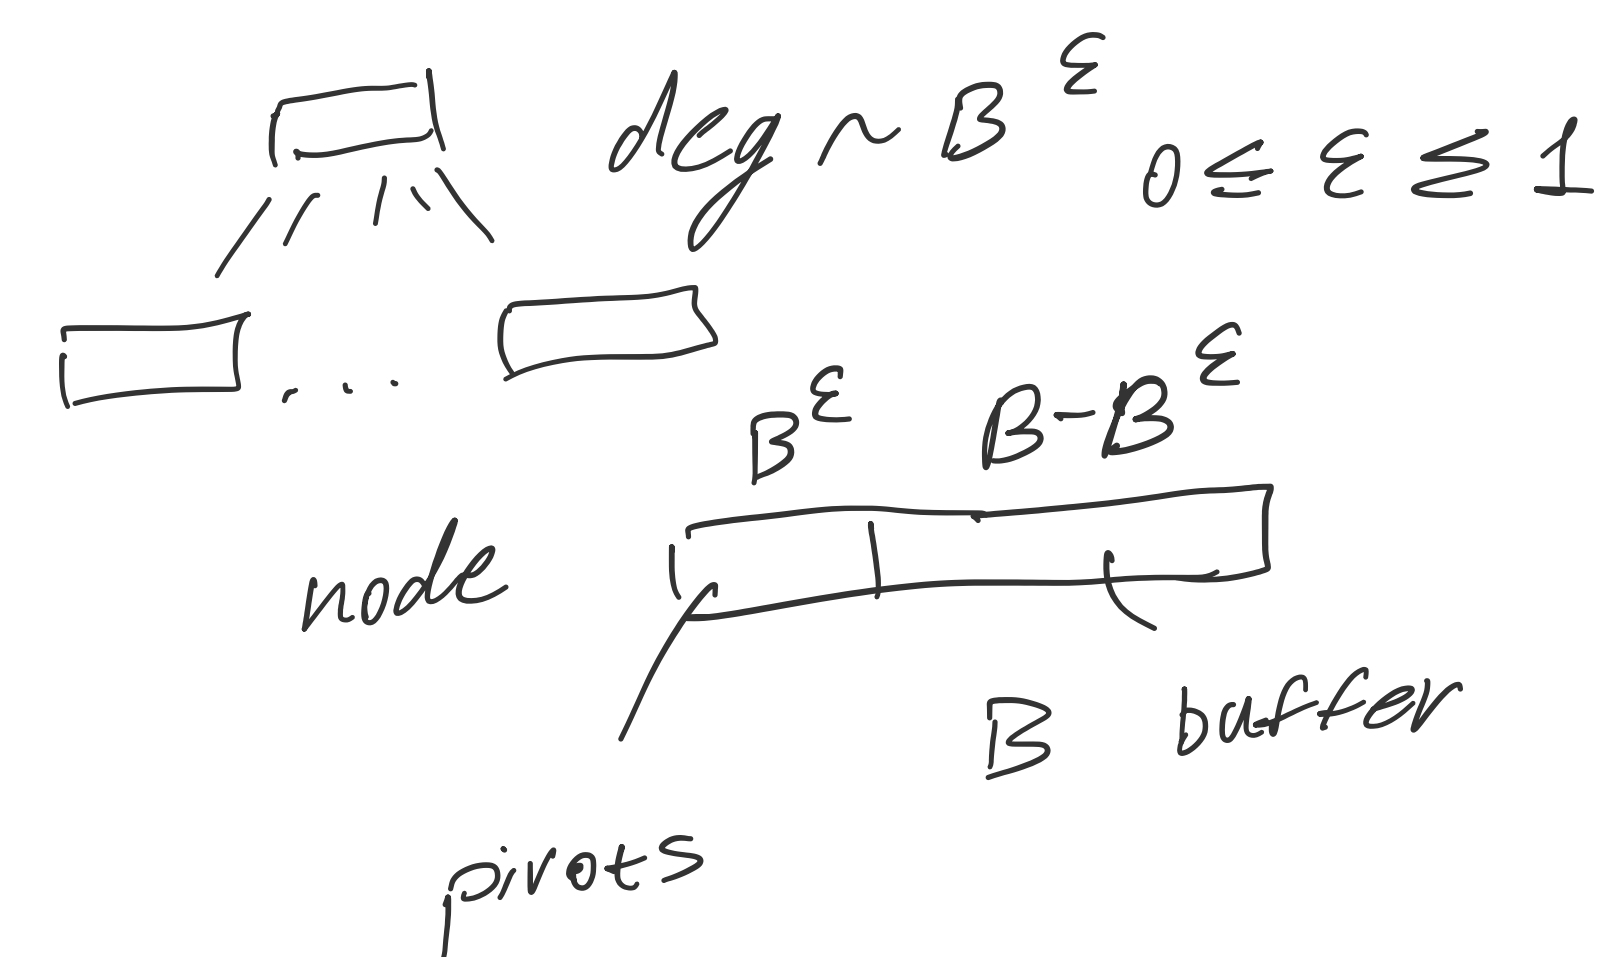 deg ~ B^ε
0 ≤ ε ≤ 1
...
B^ε B-B^ε
node
B buffer
pivots